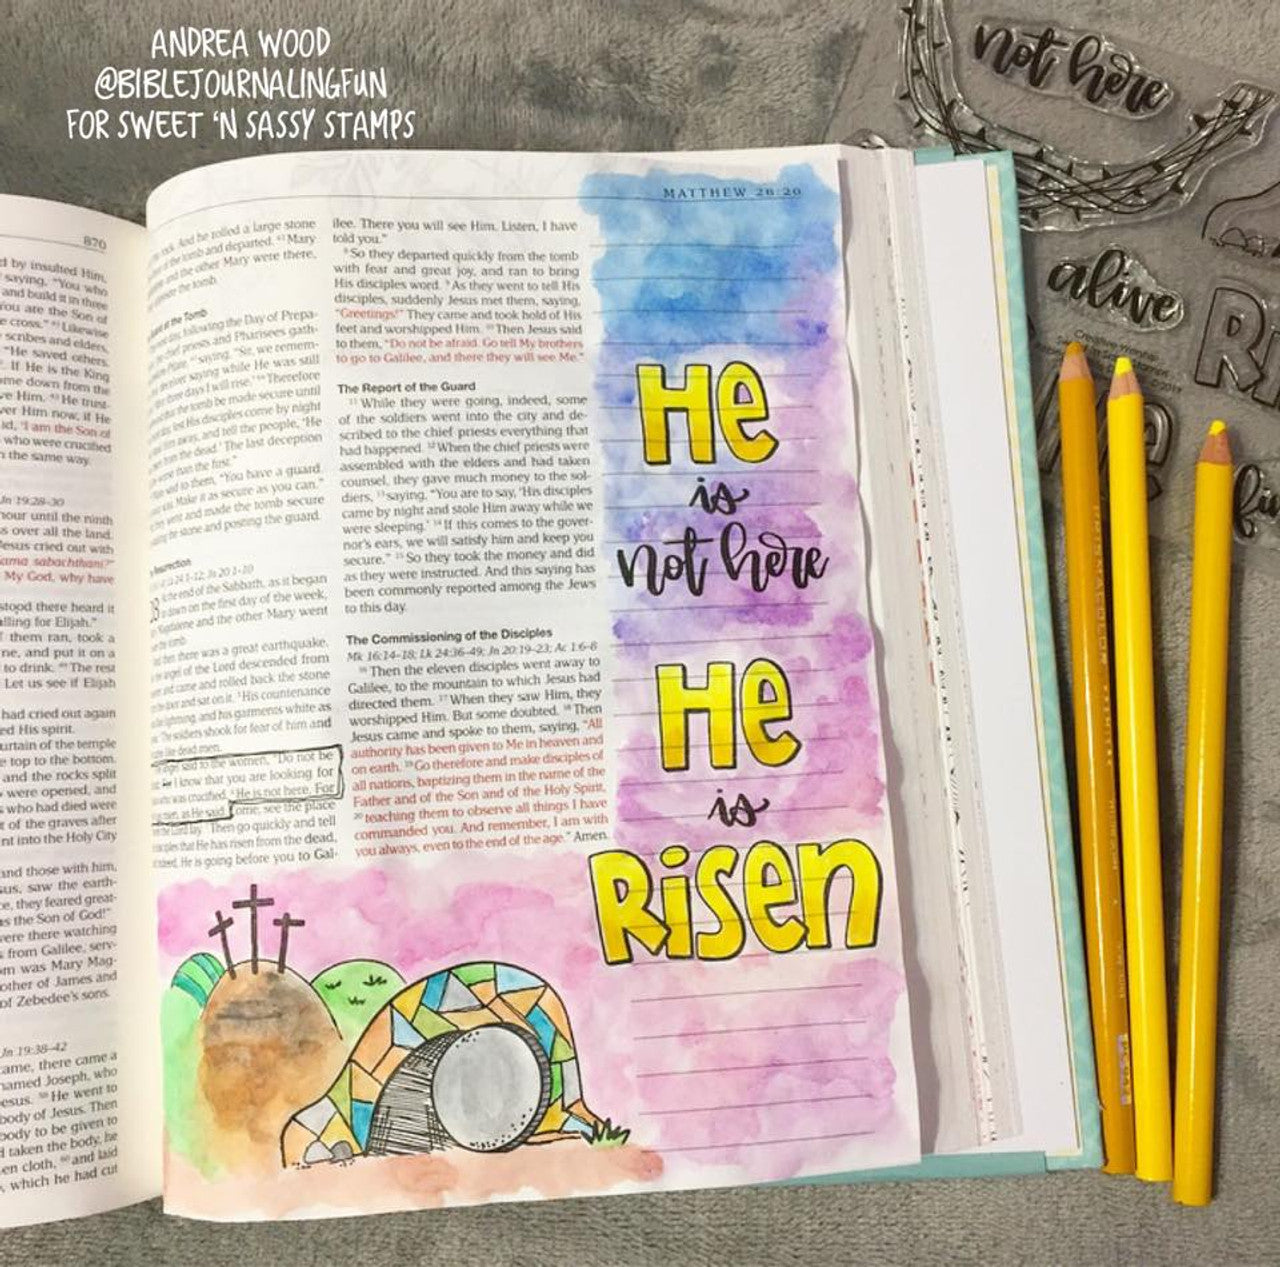 ANDREA WOOD
@BIBLEJOURNALINGFUN
FOR SWEET 'N SASSY STAMPS
870
d by insulted Him,
saying, "You who
and build it in three
You are the Son of
e cross." Likewise
scribes and elders,
"He saved others,
If He is the King
me down from the
ve Him. He trust-
ver Him now, if He
id, 'I am the Son of
who were crucified
n the same way.
Jn 19:28–30
hour until the ninth
s over all the land.
Jesus cried out with
ama sabachthani?"
My God, why have
stood there heard it
alling for Elijah."
them ran, took a
ne, and put it on a
to drink. The rest
Let us see if Elijah
had cried out again
ed His spirit.
urtain of the temple
e top to the bottom.
and the rocks split
were opened, and
who had died were
t of the graves after
nt into the Holy City
and those with him,
sus, saw the earth-
ce, they feared great-
as the Son of God!"
were there watching
from Galilee, serv-
om was Mary Mag-
other of James and
of Zebedee's sons.
Jn 19:38–42
came, there came a
named Joseph, who
esus. He went to
body of Jesus. Then
body to be given to
d taken the body, he
en cloth, and laid
, which he had cut
rock. And he rolled a large stone
tomb and departed. Mary
and the other Mary were there,
opposite the tomb.
at the Tomb
day, following the Day of Prepa-
chief priests and Pharisees gath-
saying, "Sir, we remem-
deceiver saying while He was still
three days I will rise.' Therefore
that the tomb be made secure until
lest His disciples come by night
Him away, and tell the people, 'He
from the dead.' The last deception
worse than the first."
to them, "You have a guard.
Make it as secure as you can."
went and made the tomb secure
the stone and posting the guard.
Resurrection
24:1–12; Jn 20:1–10
28 the end of the Sabbath, as it began
dawn on the first day of the week,
Magdalene and the other Mary went
the tomb.
there was a great earthquake,
angel of the Lord descended from
and came and rolled back the stone
and sat on it. His countenance
lightning, and his garments white as
The soldiers shook for fear of him and
like dead men.
angel said to the women, "Do not be
I know that you are looking for
who was crucified. He is not here. For
risen, as He said. Come, see the place
the Lord lay. Then go quickly and tell
disciples that He has risen from the dead,
indeed, He is going before you to Gal-
ilee. There you will see Him. Listen, I have
told you."
8 So they departed quickly from the tomb
with fear and great joy, and ran to bring
His disciples word. 9 As they went to tell His
disciples, suddenly Jesus met them, saying,
"Greetings!" They came and took hold of His
feet and worshipped Him. 10 Then Jesus said
to them, "Do not be afraid. Go tell My brothers
to go to Galilee, and there they will see Me."
The Report of the Guard
11 While they were going, indeed, some
of the soldiers went into the city and de-
scribed to the chief priests everything that
had happened. 12 When the chief priests were
assembled with the elders and had taken
counsel, they gave much money to the sol-
diers, 13 saying, "You are to say, 'His disciples
came by night and stole Him away while we
were sleeping.' 14 If this comes to the gover-
nor's ears, we will satisfy him and keep you
secure." 15 So they took the money and did
as they were instructed. And this saying has
been commonly reported among the Jews
to this day.
The Commissioning of the Disciples
Mk 16:14–18; Lk 24:36–49; Jn 20:19–23; Ac 1:6–8
16 Then the eleven disciples went away to
Galilee, to the mountain to which Jesus had
directed them. 17 When they saw Him, they
worshipped Him. But some doubted. 18 Then
Jesus came and spoke to them, saying, "All
authority has been given to Me in heaven and
on earth. 19 Go therefore and make disciples of
all nations, baptizing them in the name of the
Father and of the Son and of the Holy Spirit,
20 teaching them to observe all things I have
commanded you. And remember, I am with
you always, even to the end of the age." Amen.
MATTHEW 28:20
He
is
not here
He
is
Risen
not here
alive